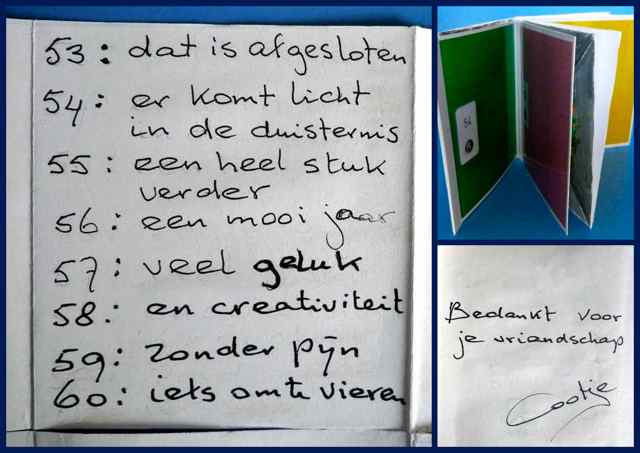 53: dat is afgesloten
54: er komt licht
in de duisternis
55: een heel stuk
verder
56: een mooi jaar
57: veel geluk
58: en creativiteit
59: zonder pijn
60: iets om te vieren
54
Bedankt voor
je vriendschap
Cootje